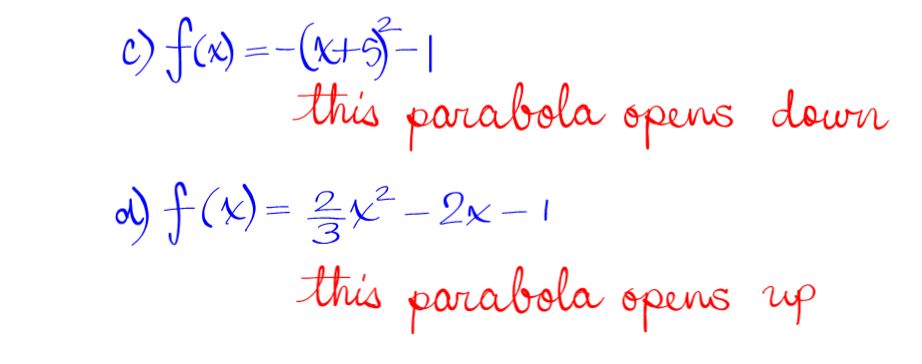 c) f(x) = -(x+5)² - 1
this parabola opens down
d) f(x) = 2/3 x² - 2x - 1
this parabola opens up